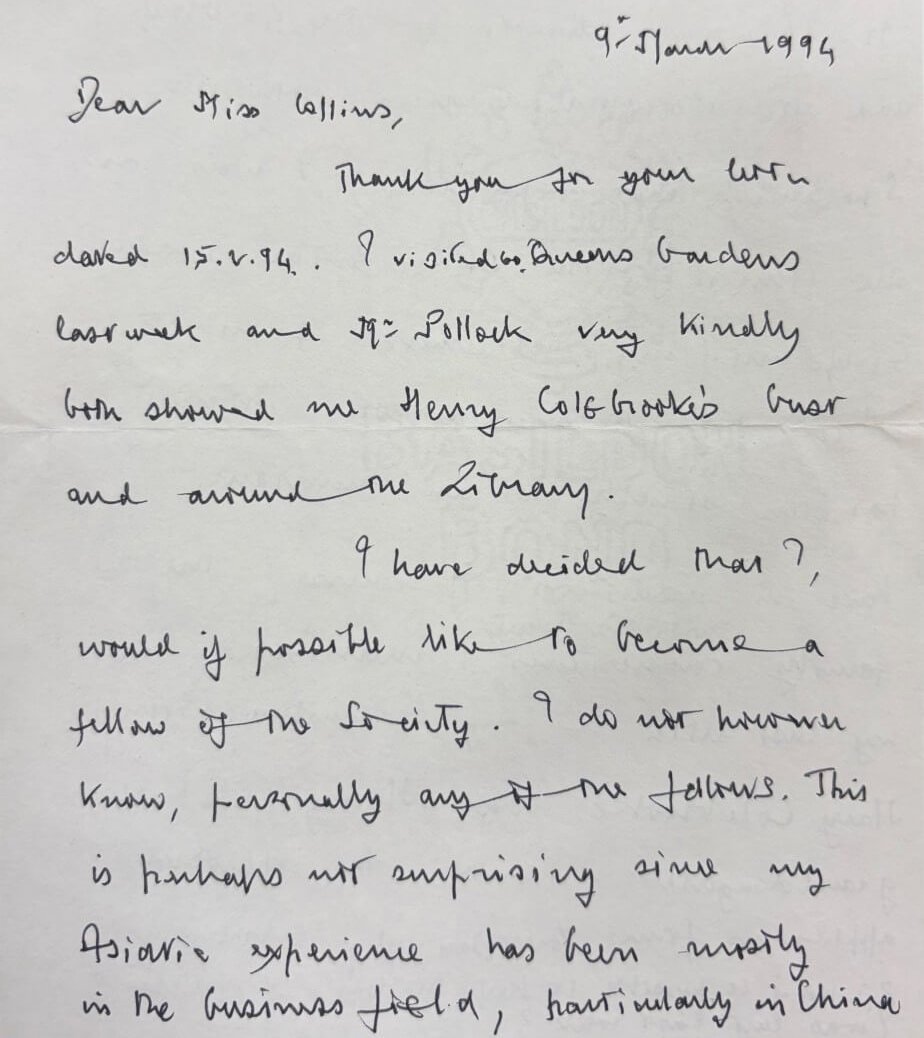 9th March 1994
Dear Miss Collins,
Thank you for your letter
dated 15.2.94. I visited 60, Queens Gardens
last week and Mr Pollock very kindly
both showed me Henry Colebrooke's bust
and around the Library.
I have decided that I,
would if possible like to become a
fellow of the Society. I do not however
know, personally any of the fellows. This
is perhaps not surprising since my
Asiatic experience has been mostly
in the business field, particularly in China